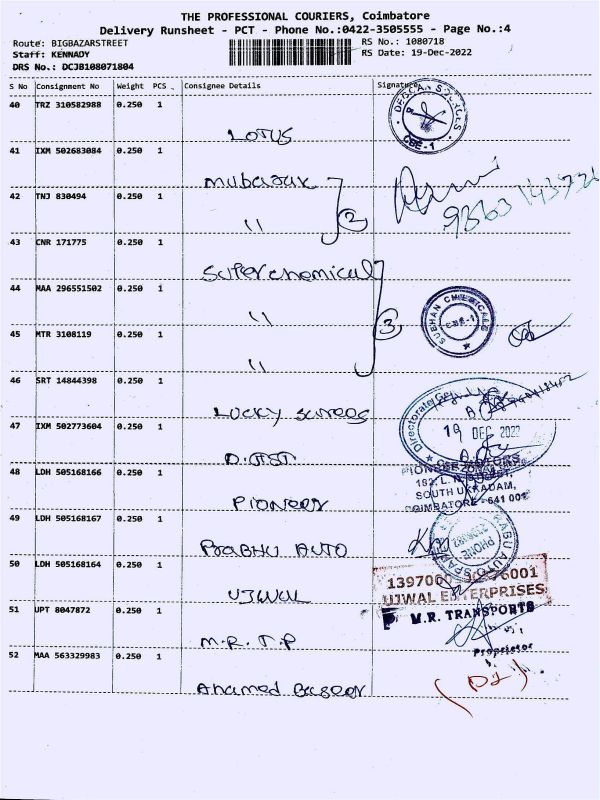 THE PROFESSIONAL COURIERS, Coimbatore
Delivery Runsheet - PCT - Phone No.:0422-3505555 - Page No.:4
Route: BIGBAZARSTREET
RS No.: 1080718
Staff: KENNADY
RS Date: 19-Dec-2022
DRS No.: DCJB108071804
S No Consignment No Weight PCS Consignee Details Signature
40 TRZ 310582988 0.250 1
LOTUS
DECCAN
CBE-1
41 IXM 502683084 0.250 1
Mubarak
42 TNJ 830494 0.250 1
" 2
43 CNR 171775 0.250 1
Super chemical
44 MAA 296551502 0.250 1
" 3
SUBHAN CHEMICALS
CBE-1
45 MTR 3108119 0.250 1
"
46 SRT 14844398 0.250 1
Lucky Screes
Directorate
19 DEC 2022
47 IXM 502773604 0.250 1
48 LDH 505168166 0.250 1
Pioneer
182, L. N.
SOUTH UKKADAM,
COIMBATORE - 641 001
49 LDH 505168167 0.250 1
Prabhu AUTO
PHONE
50 LDH 505168164 0.250 1
UJWUL
UJWAL ENTERPRISES
51 UPT 8047872 0.250 1
M.R.T.P
M.R. TRANSPORTS
Proprietor
52 MAA 563329983 0.250 1
Ahamed Baseer